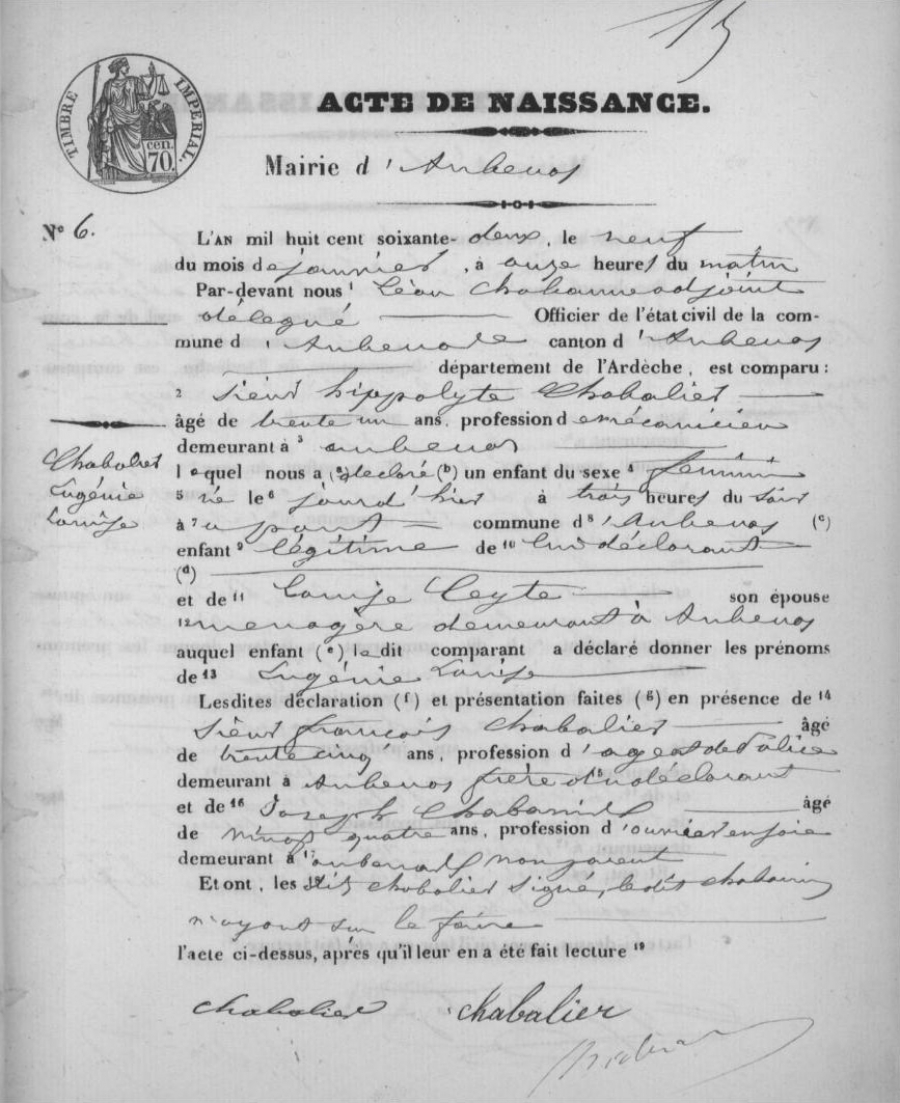 15
TIMBRE IMPERIAL.
cen.
70.
ACTE DE NAISSANCE.
Mairie d'Aubenas
N° 6.
L'AN mil huit cent soixante-deux, le neuf
du mois de janvier, à onze heures du matin
Par-devant nous ¹ Léon Chabanne adjoint
délégué Officier de l'état civil de la com-
mune d'Aubenas canton d'Aubenas
département de l'Ardèche, est comparu :
² Sieur hippolyte Chabalier
âgé de trente un ans, profession de mécanicien
demeurant à ³ aubenas
Chabalier
Eugénie
Louise
lequel nous a (a) declaré (b) un enfant du sexe ⁴ féminin
⁵ né le ⁶ jourd'hier à trois heures du soir
à ⁷ commune d ⁸'Aubenas (c)
enfant ⁹ légitime de ¹⁰ lui déclarant
(d)
et de ¹¹ Louise Ceyte son épouse
¹² menagère demeurant à Aubenas
auquel enfant (e) ledit comparant a déclaré donner les prénoms
de ¹³ Eugénie Louise
Lesdites déclaration (f) et présentation faites (g) en présence de ¹⁴
Sieur françois Chabalier âgé
de trente cinq ans, profession d'agent de Police
demeurant à Aubenas frère ¹⁵ du déclarant
et de ¹⁶ Joseph âgé
de vingt quatre ans, profession d'ouvrier en soie
demeurant à ¹⁷ aubenas non parent
Et ont, les ¹⁸ dits chabalier signé, le dit
n'ayant su le faire
l'acte ci-dessus, après qu'il leur en a été fait lecture ¹⁹
chabalier chabalier